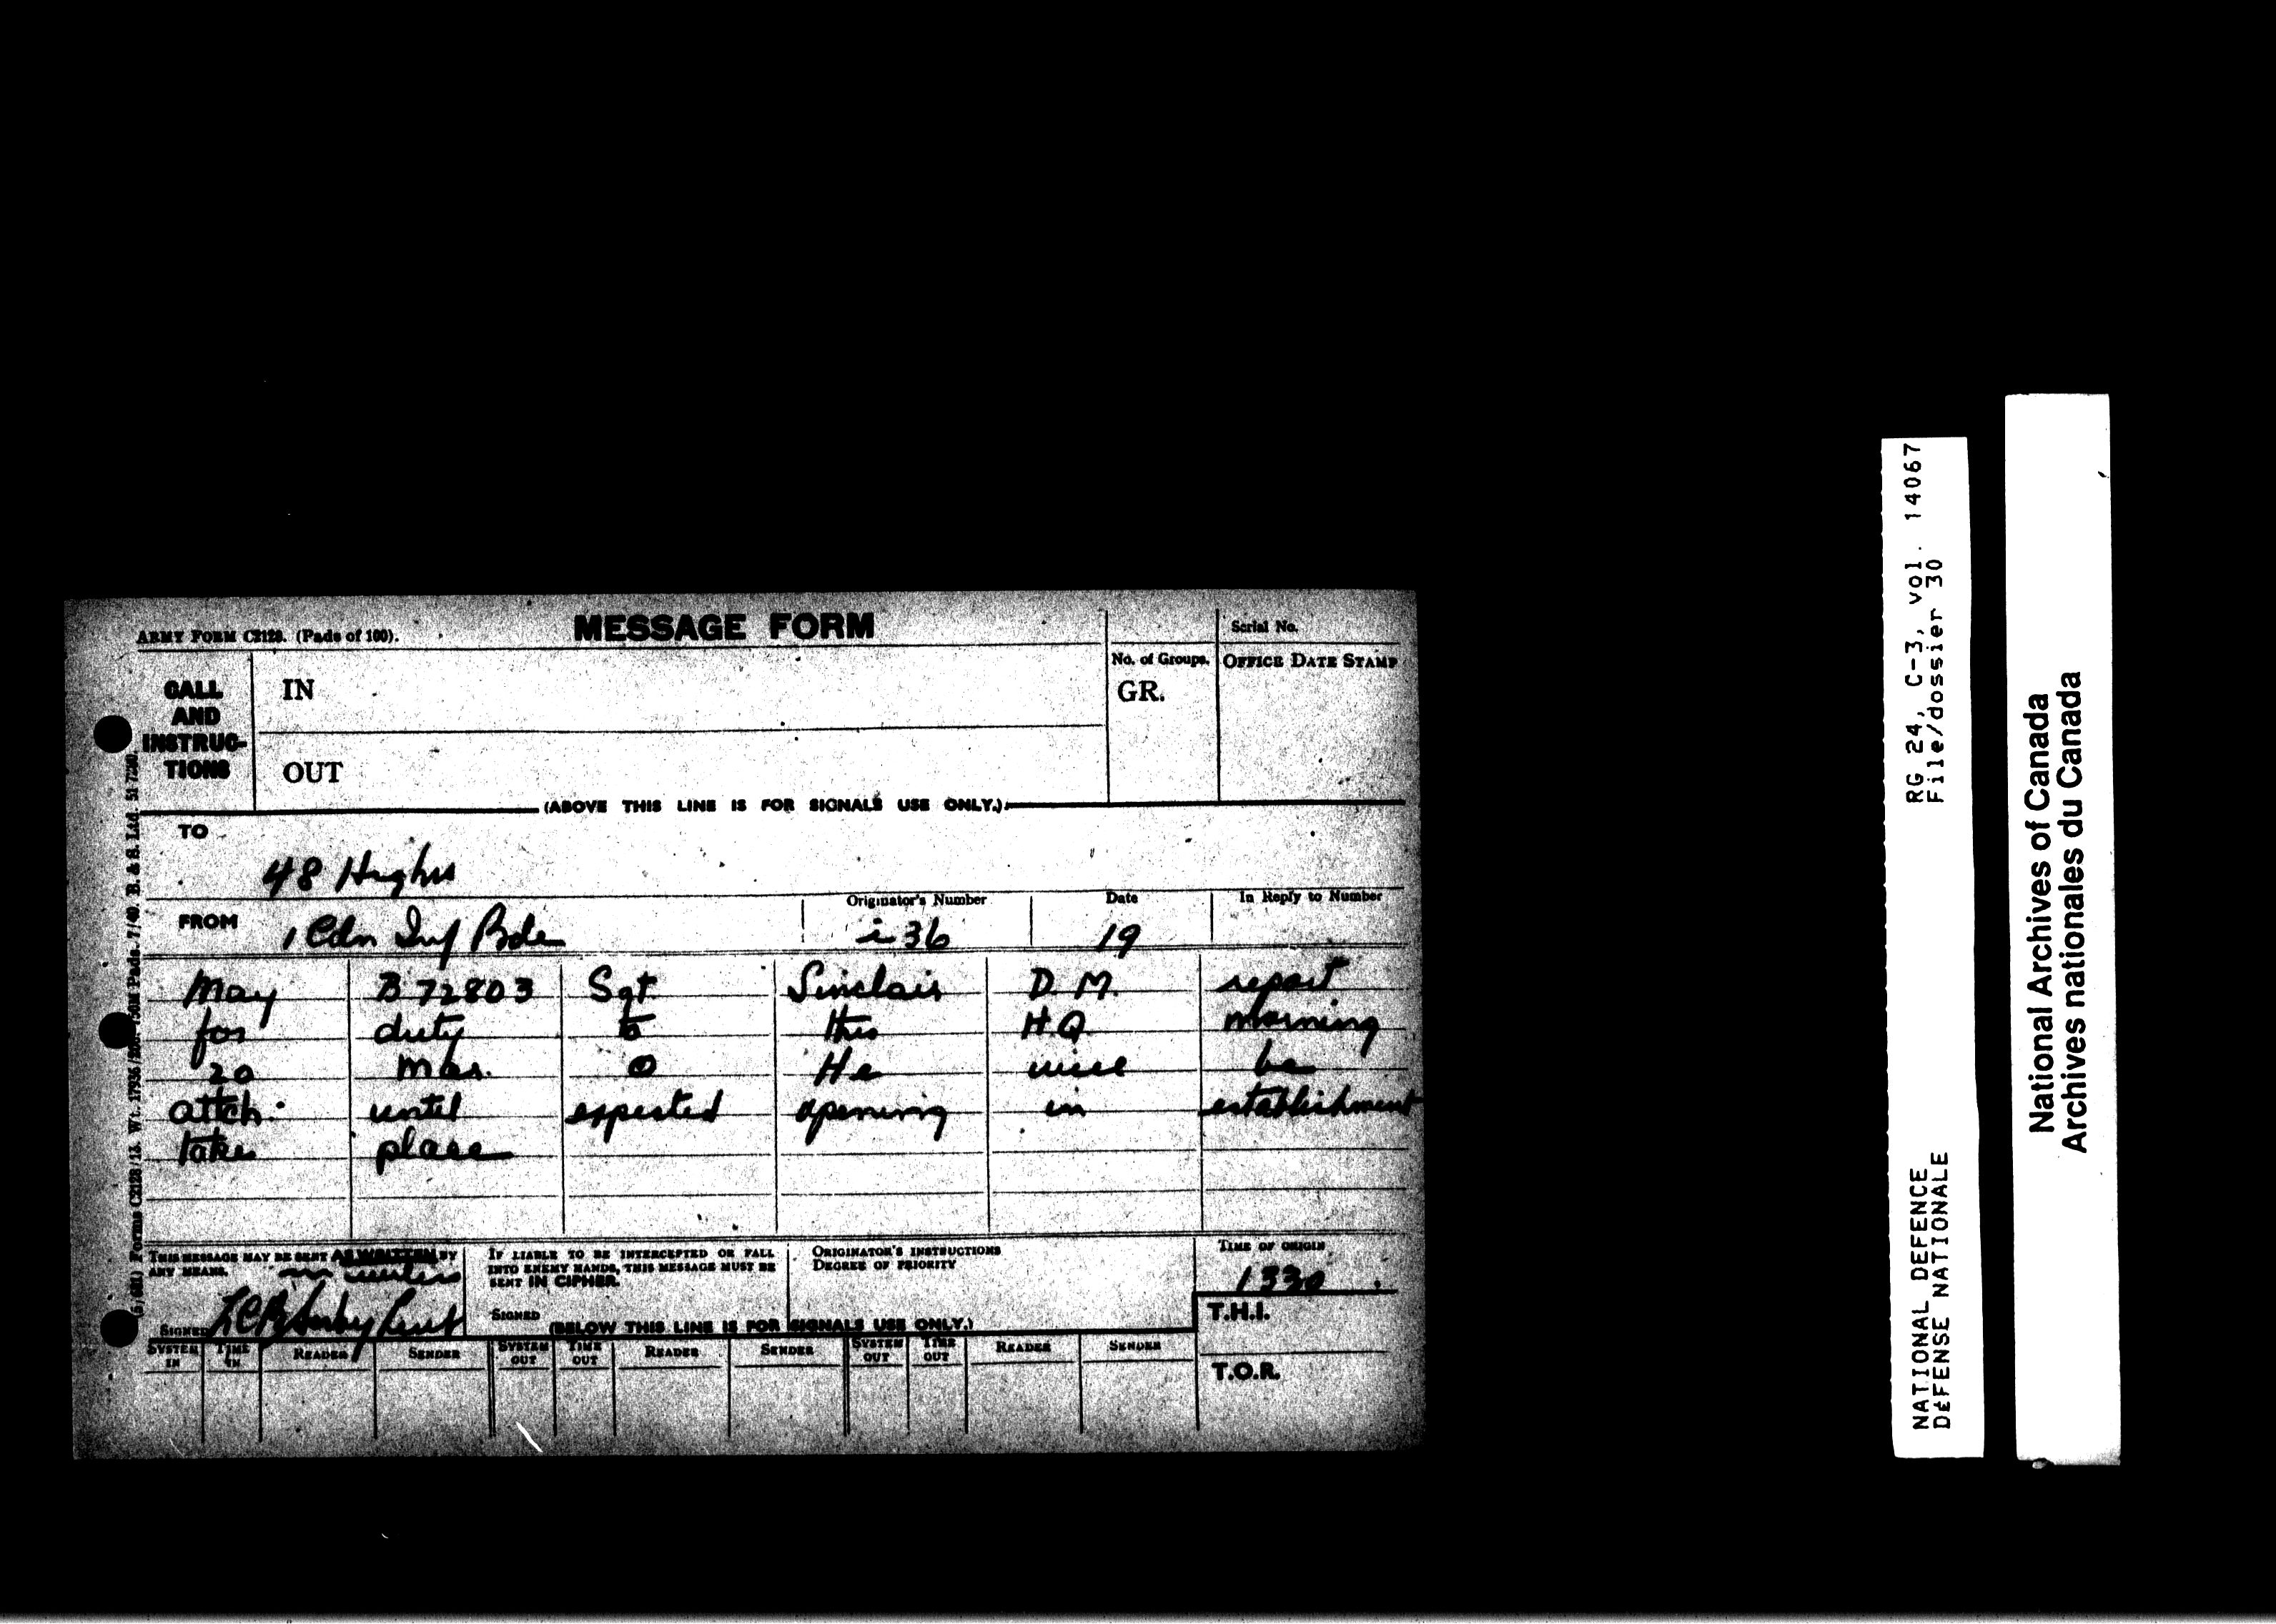 ARMY FORM C2128. (Pads of 100).
MESSAGE FORM
Serial No.
CALL AND INSTRUC-TIONS
IN
No. of Groups.
GR.
OFFICE DATE STAMP
OUT
(ABOVE THIS LINE IS FOR SIGNALS USE ONLY.)
TO
48 Highrs
FROM
1 Cdn Inf Bde
Originator's Number
i 36
Date
19
In Reply to Number
May B 72803 Sgt Sinclair D. M. report
for duty to this H.Q. morning
20 Mar. O He will be
attch. until expected opening in establishment
takes place
THIS MESSAGE MAY BE SENT AS WRITTEN BY
ANY MEANS.
SIGNED
IF LIABLE TO BE INTERCEPTED OR FALL
INTO ENEMY HANDS, THIS MESSAGE MUST BE
SENT IN CIPHER.
SIGNED
ORIGINATOR'S INSTRUCTIONS
DEGREE OF PRIORITY
TIME OF ORIGIN
1330
T.H.I.
(BELOW THIS LINE IS FOR SIGNALS USE ONLY.)
SYSTEM IN TIME IN READER SENDER SYSTEM OUT TIME OUT READER SENDER SYSTEM OUT TIME OUT READER SENDER
T.O.R.
RG 24, C-3, vol. 14067
File/dossier 30
NATIONAL DEFENCE
DÉFENSE NATIONALE
National Archives of Canada
Archives nationales du Canada